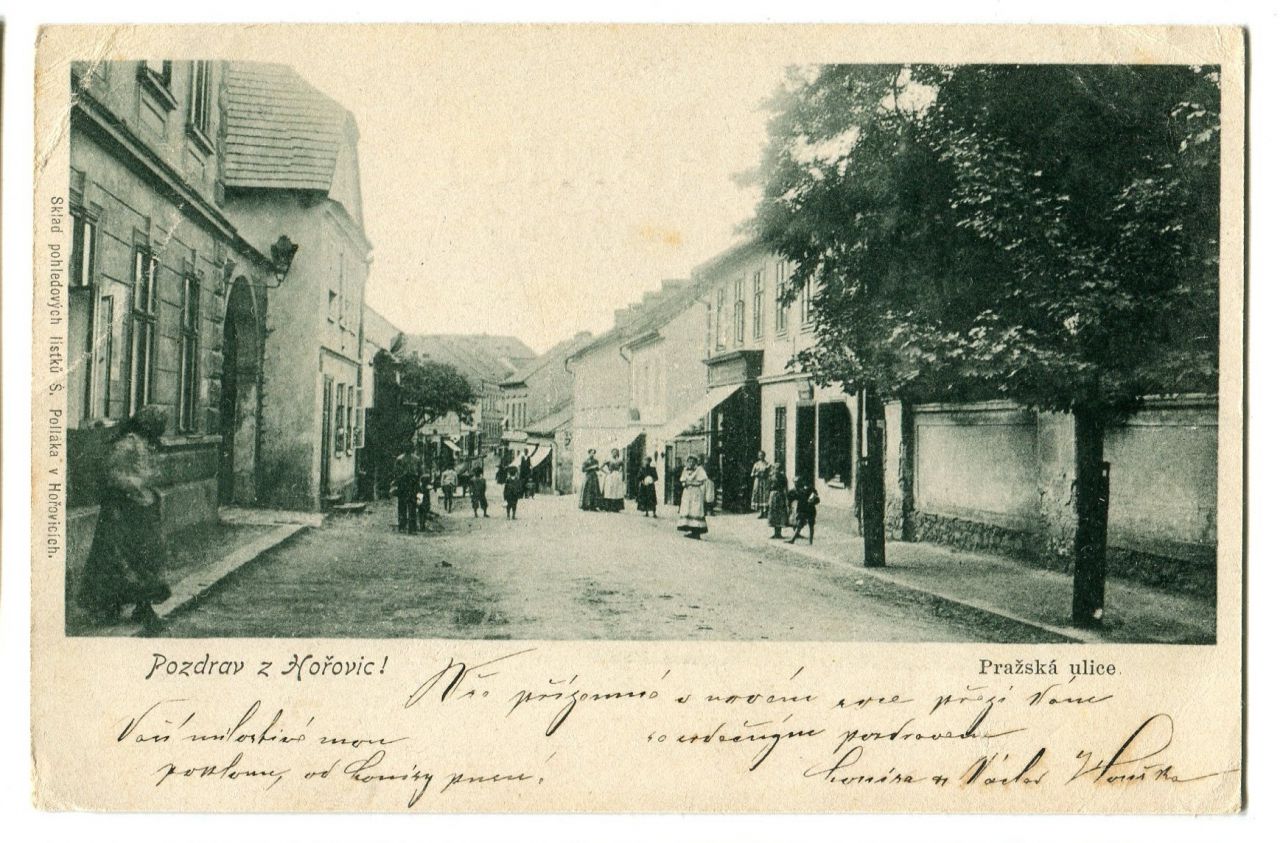 Sklad pohledových lístků Š. Polláka v Hořovicích.
Pozdrav z Hořovic!
Pražská ulice.
Vše příjemné v novém roce přejí Vám
se srdečným pozdravem
Louisa a Václav
Vaší milostivé
poklonu, od Louisy